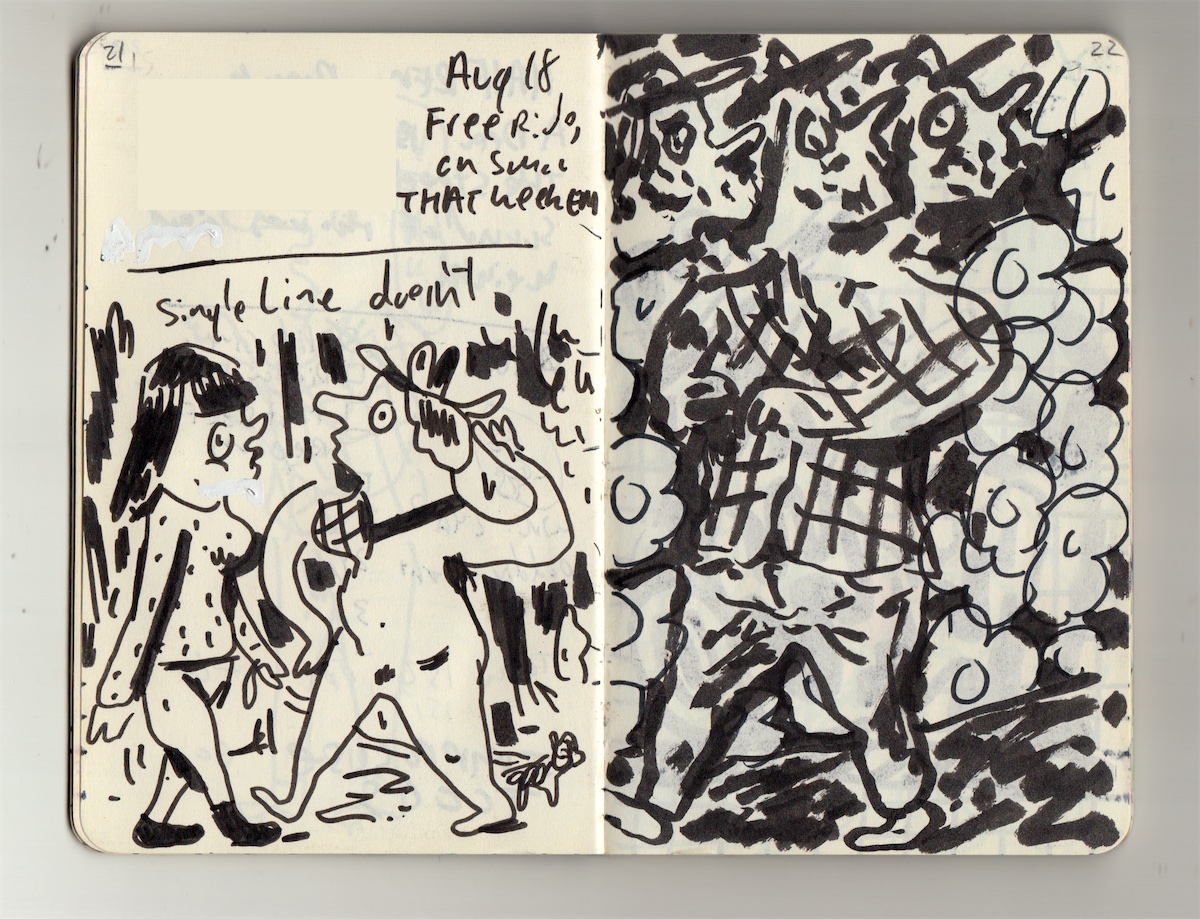 21
Aug 18
Free
on
THAT weekEND
single Line doesn't
22